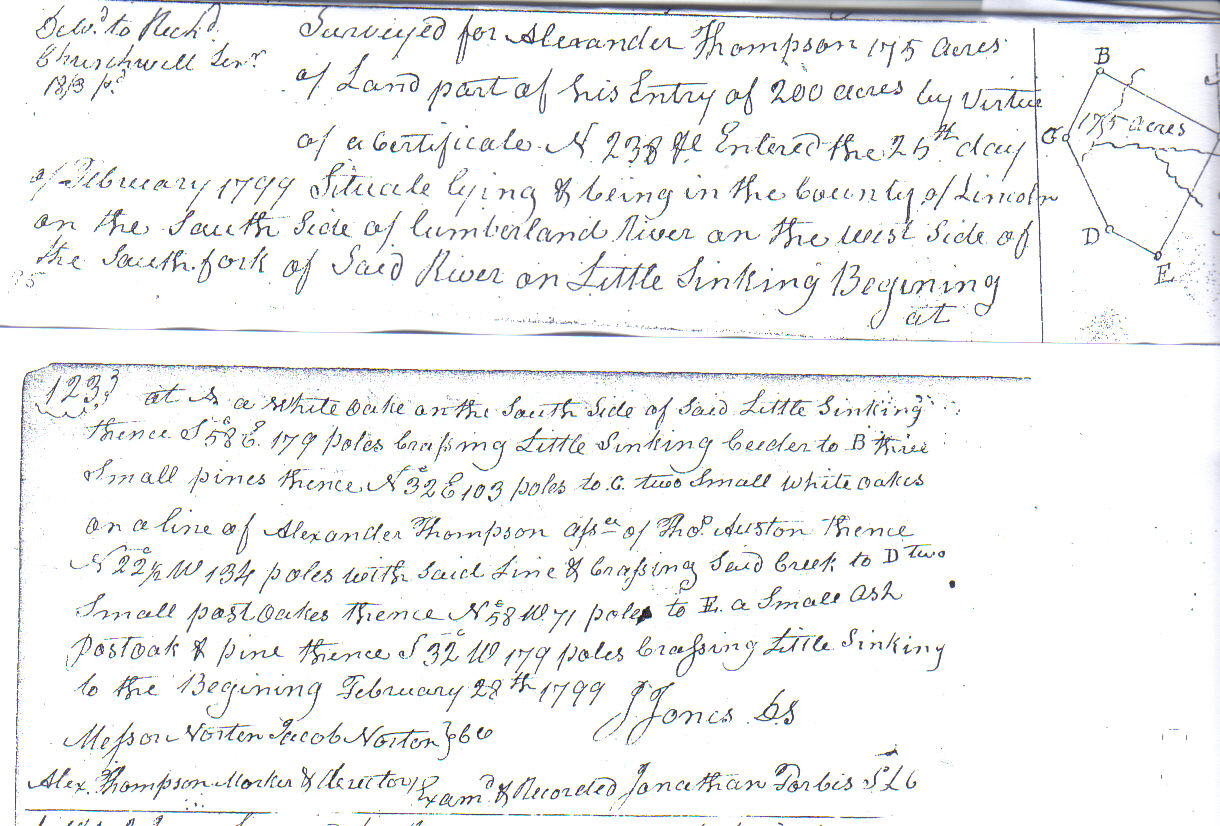 Delvd. to Richd.
Churchwell Senr.
1813 pd.
Surveyed for Alexander Thompson 175 acres
of Land part of his Entry of 200 acres by Virtue
of a Certificate N. 238 Entered the 26th day
of February 1799 Situate lying & being in the County of Lincoln
on the South Side of Cumberland River on the west Side of
the South fork of Said River on Little Sinking Begining
at
B
175 acres
C
D
E
123
at A a white oake on the South Side of Said Little Sinking
thence S 58 E. 179 poles Crassing Little Sinking Creeder to B three
Small pines thence N 32 E 103 poles to C. two Small white oakes
on a line of Alexander Thompson assee of Thos. Auston thence
N 22 1/2 W 134 poles with Said Line & Crassing Said Creek to D two
Small post Oakes thence N 58 W. 71 poles to E. a Small ash
postoak & pine thence S 32 W 179 poles Crassing Little Sinking
to the Begining February 28th 1799 J Jones DS
Norten Jacob Norton
Alex. Thompson Marker & Derector Examd. & Recorded Jonathan Forbis SLC